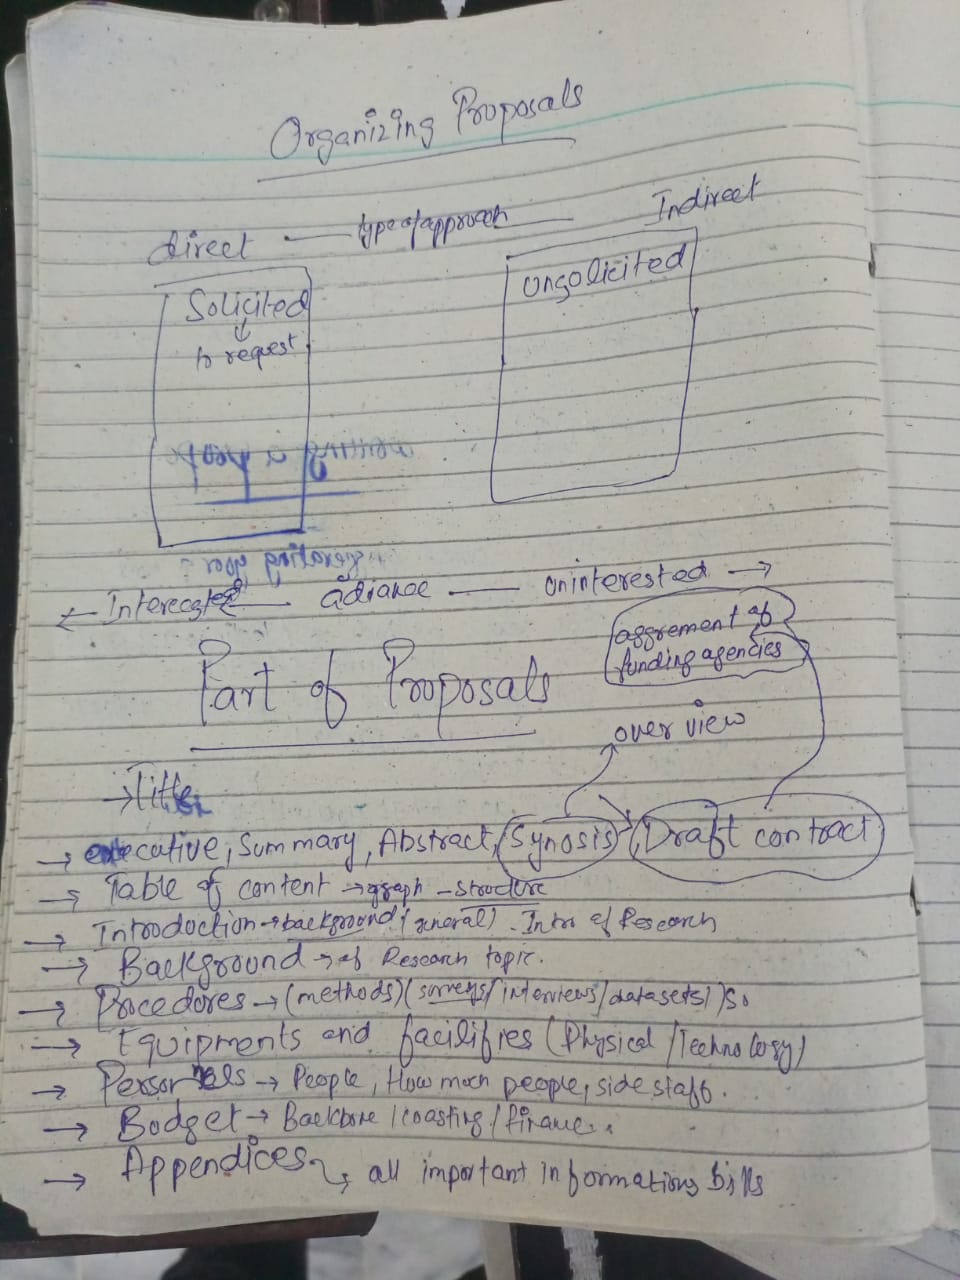 Organizing Proposals
direct — type of approach — Indirect
Solicited
to request
Unsolicited
Interested — — uninterested
aggrement of
funding agencies
Part of Proposals
over view
Title
executive, Summary, Abstract, Synosis, Draft contract
Table of content → graph - structure
Introduction → background (general). Intro of Research
Background → of Research topic.
Procedures → (methods) (surveys/interviews/datasets/) So
Equipments and facilities (Physical/Technology)
Personnels → People, How much people, side staff.
Budget → Backbone / coasting / finance..
Appendices → all important informations bills